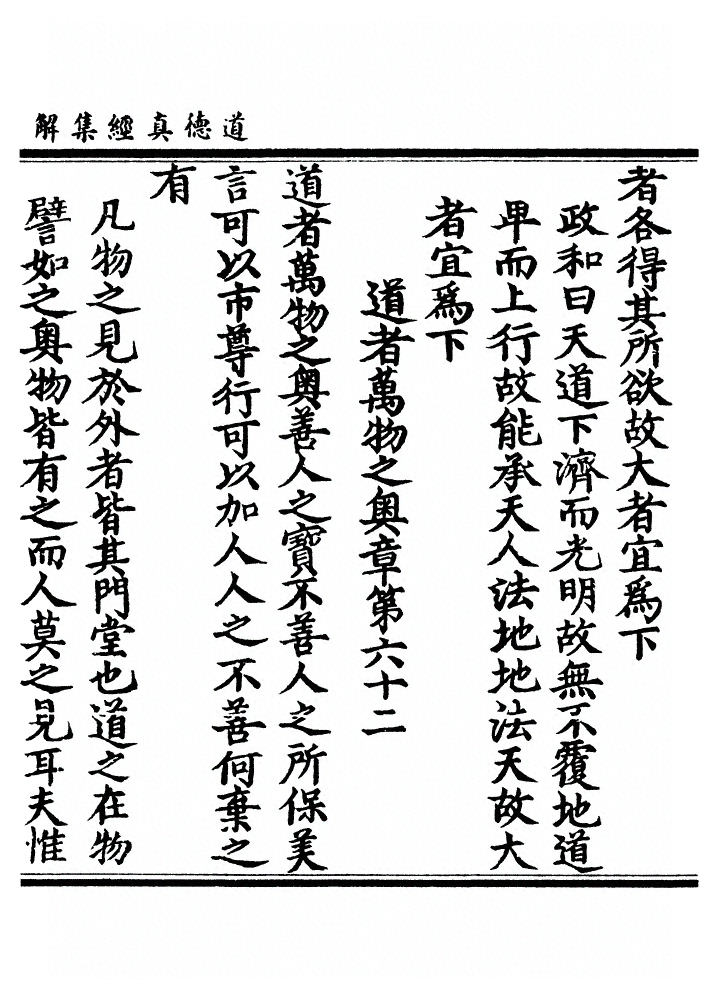 道德真經集解
者各得其所欲故大者宜爲下
政和曰天道下濟而光明故無不覆地道
卑而上行故能承天人法地地法天故大
者宜爲下
道者萬物之奧章第六十二
道者萬物之奧善人之寶不善人之所保美
言可以市尊行可以加人人之不善何棄之
有
凡物之見於外者皆其門堂也道之在物
譬如之奧物皆有之而人莫之見耳夫惟